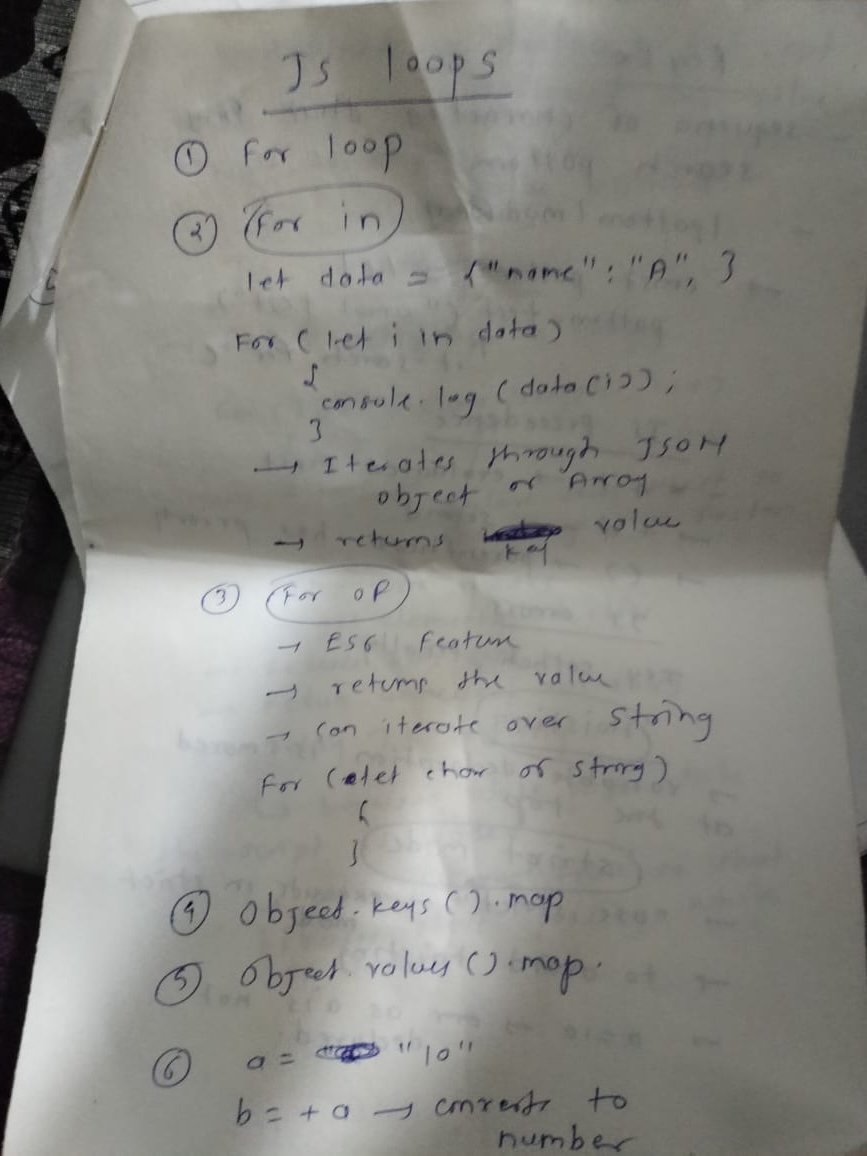 Js loops
① For loop
② For in
let data = {"name": "A", }
For ( let i in data)
{
console.log (data(i));
}
→ Iterates through JSON
object or Array
→ returns value
key
③ For of
→ ES6 Feature
→ returns the value
→ Can iterate over string
For ( let char of string)
{
}
④ Object.keys().map
⑤ Object.values().map.
⑥ a = "10"
b = + a → converts to
number